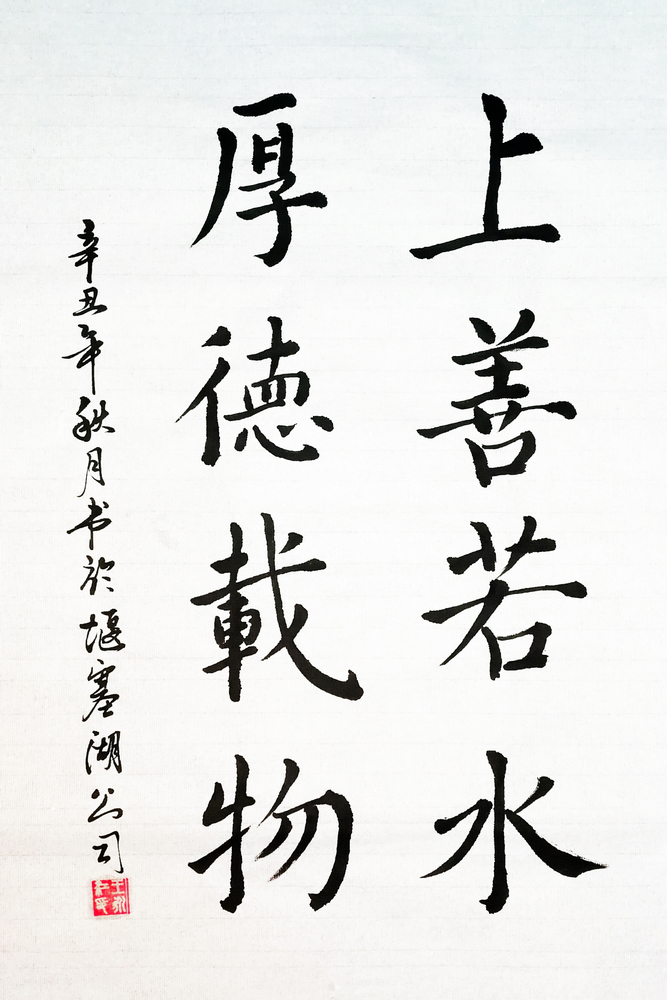 上善若水
厚德載物
辛丑年秋月书於堰塞湖公司